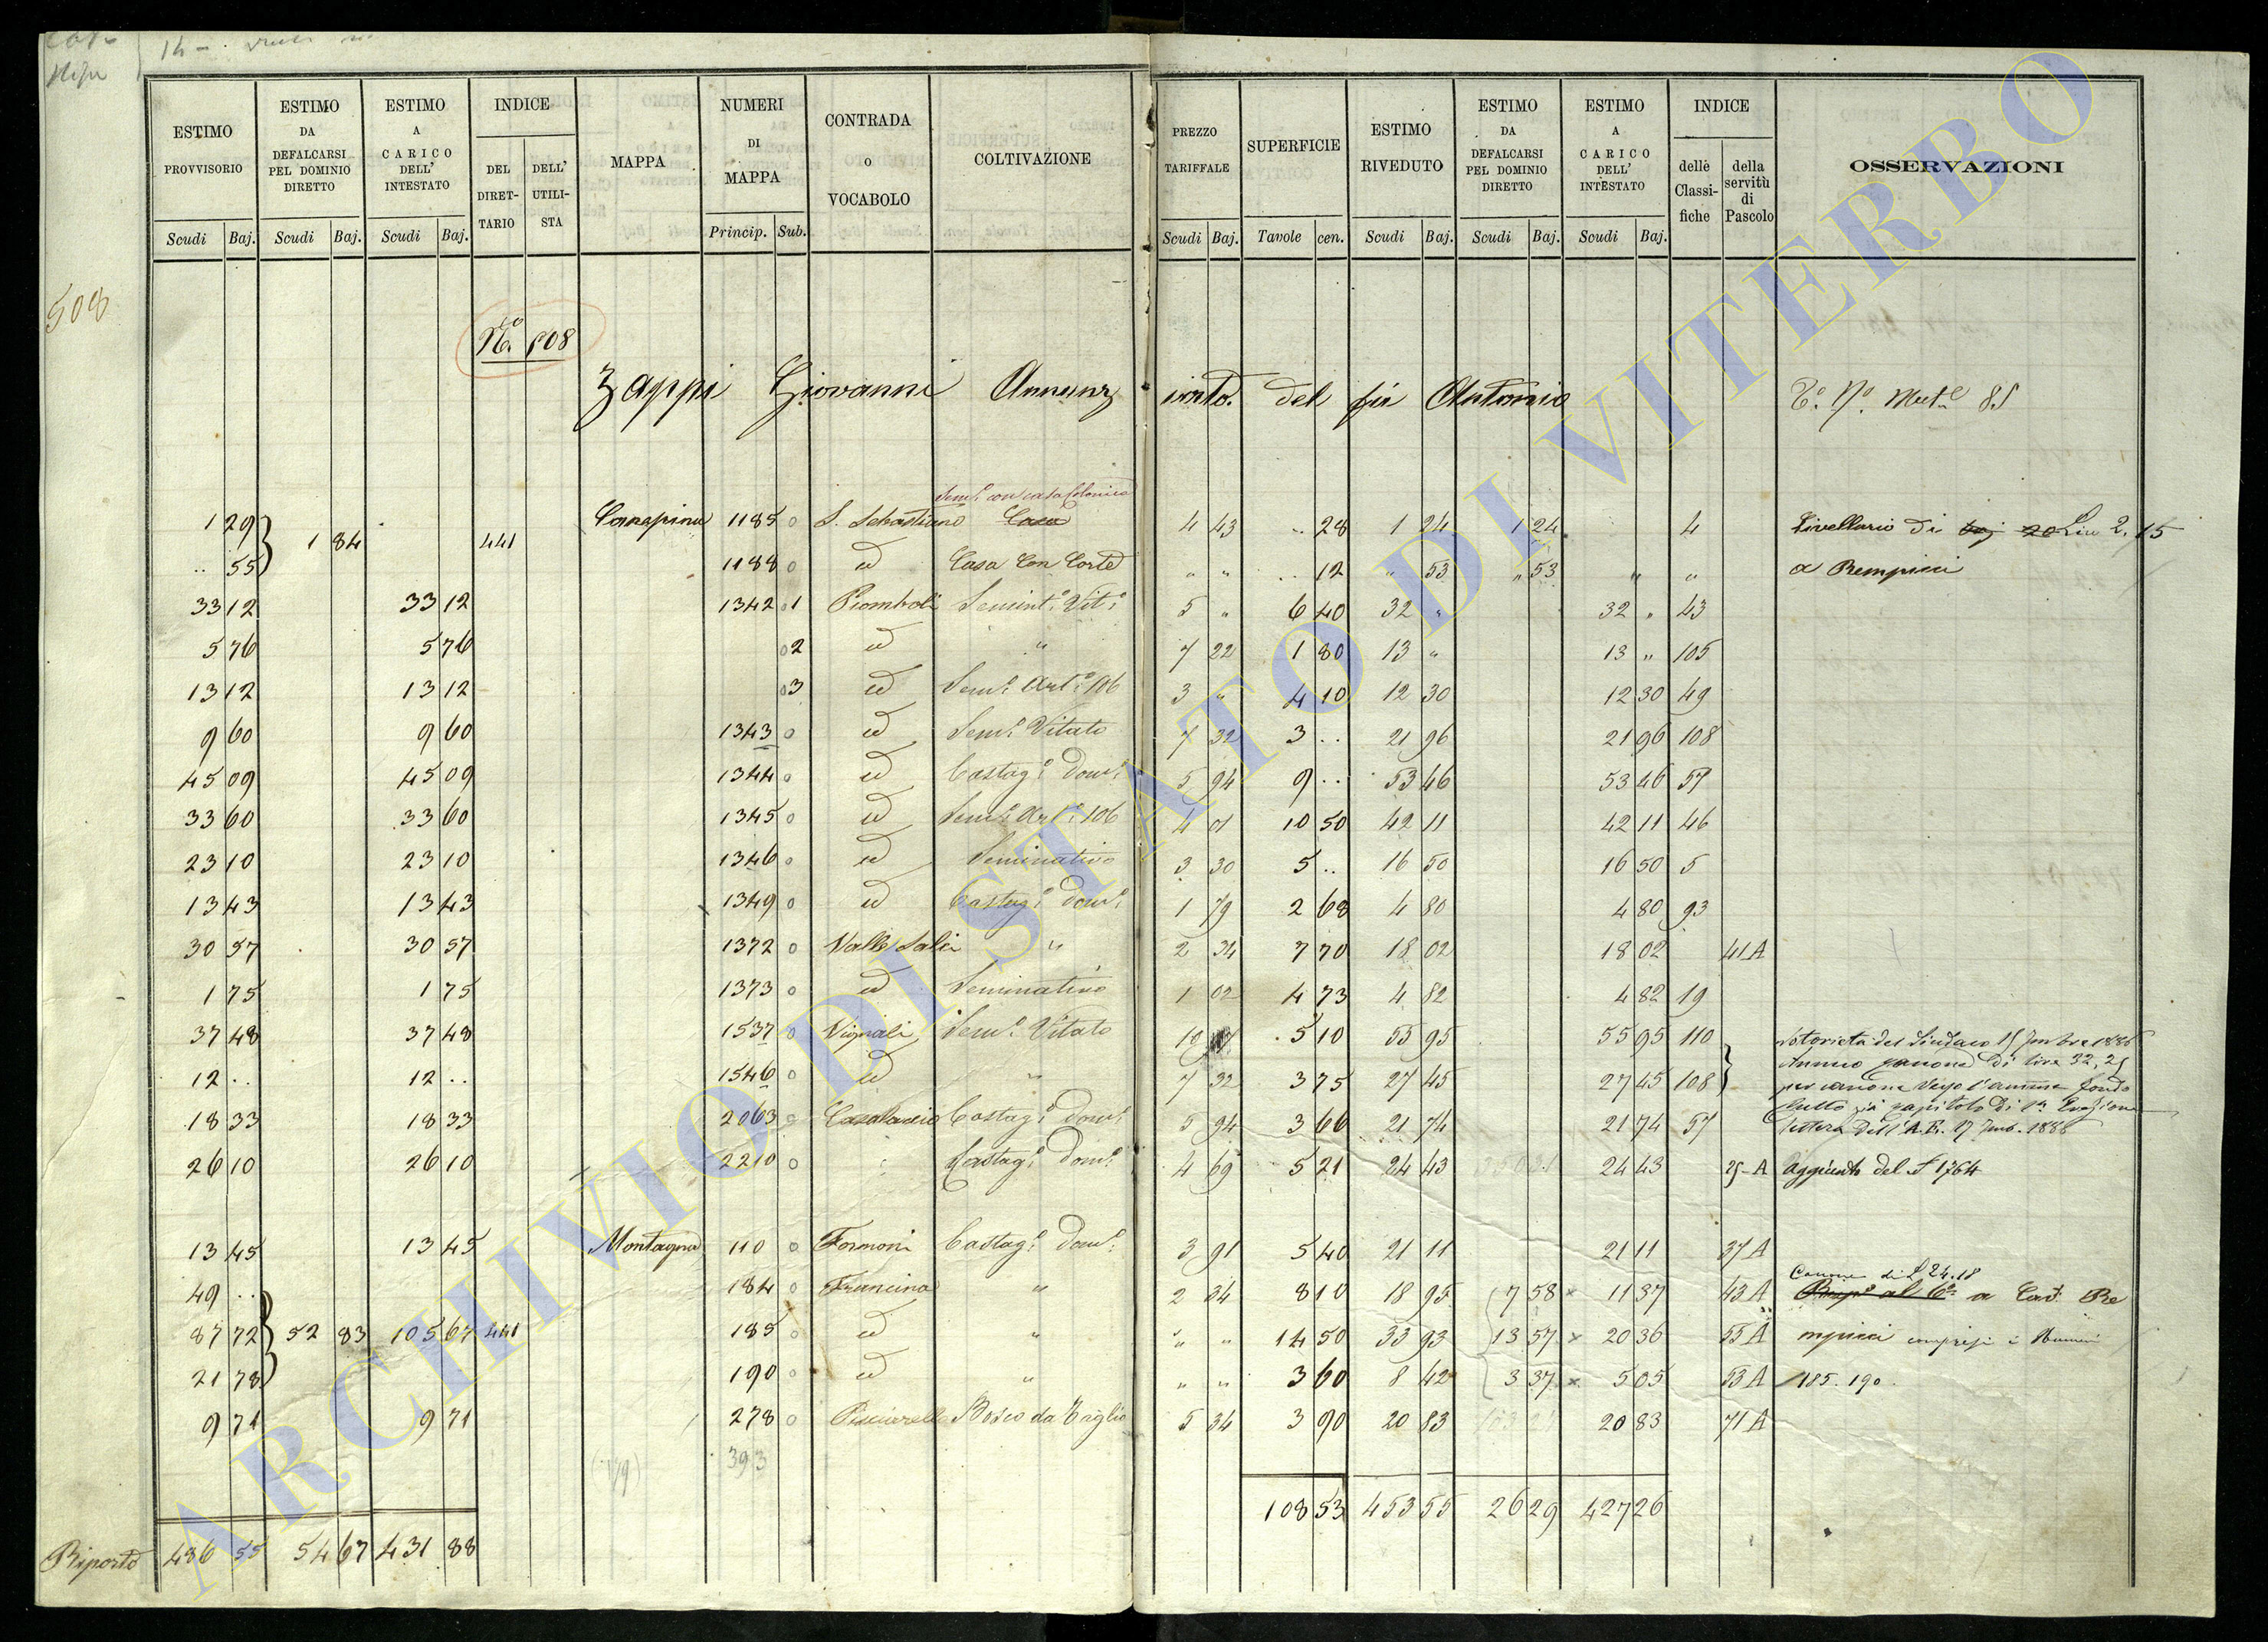 14 -
508
ESTIMO PROVVISORIO | ESTIMO DA DEFALCARSI PEL DOMINIO DIRETTO | ESTIMO A CARICO DELL' INTESTATO | INDICE | MAPPA | NUMERI DI MAPPA | CONTRADA O VOCABOLO | COLTIVAZIONE | PREZZO TARIFFALE | SUPERFICIE | ESTIMO RIVEDUTO | ESTIMO DA DEFALCARSI PEL DOMINIO DIRETTO | ESTIMO A CARICO DELL' INTESTATO | INDICE | OSSERVAZIONI
DEL DIRET-TARIO | DELL' UTILI-STA | delle Classi-fiche | della servitù di Pascolo
Scudi Baj. | Scudi Baj. | Scudi Baj. | Princip. Sub. | Scudi Baj. | Tavole cen. | Scudi Baj. | Scudi Baj. | Scudi Baj.
No. 508
Zappi Giovanni Annunziato. del fu Antonio
Sem.o con casa Colonica
1 29 | 1 84 | 441 | Canepina | 1185 0 | S. Sebastiano | Casa | 4 43 | .. 28 | 1 24 | 1 24 | 4 | Livellario di baj 20 Lire 2.15
.. 55 | 1188 0 | id | Casa Con Corte | " " | .. 12 | " 53 | " 53 | " | " | a Rempicci
33 12 | 33 12 | 1342 01 | Piomboli | Semint.o Vit.o | 5 " | 6 40 | 32 " | 32 " | 43
5 76 | 5 76 | 02 | id | " | 7 22 | 1 80 | 13 " | 13 " | 105
13 12 | 13 12 | 03 | id | Sem.o Art.o 106 | 3 " | 4 10 | 12 30 | 12 30 | 49
9 60 | 9 60 | 1343 0 | id | Sem.o Vitato | 7 32 | 3 .. | 21 96 | 21 96 | 108
45 09 | 45 09 | 1344 0 | id | Castag.o Dom.o | 5 94 | 9 .. | 53 46 | 53 46 | 57
33 60 | 33 60 | 1345 0 | id | Sem.o Art.o 106 | 4 01 | 10 50 | 42 11 | 42 11 | 46
23 10 | 23 10 | 1346 0 | id | Seminativo | 3 30 | 5 .. | 16 50 | 16 50 | 5
13 43 | 13 43 | 1349 0 | id | Castag.o Dom.o | 1 79 | 2 68 | 4 80 | 4 80 | 93
30 57 | 30 57 | 1372 0 | Valle Salci | " | 2 34 | 7 70 | 18 02 | 18 02 | 41 A
1 75 | 1 75 | 1373 0 | id | Seminativo | 1 02 | 4 73 | 4 82 | 4 82 | 19
37 48 | 37 48 | 1537 0 | Vignali | Sem.o Vitato | 10 | 5 10 | 55 95 | 55 95 | 110
12 .. | 12 .. | 1546 0 | id | " | 7 32 | 3 75 | 27 45 | 27 45 | 108
18 33 | 18 33 | 2063 0 | Casalaccio | Castag.o Dom.o | 5 94 | 3 66 | 21 74 | 21 74 | 57
26 10 | 26 10 | 2210 0 | Castag.o Dom.o | 4 69 | 5 21 | 24 43 | 24 43 | 25-A | aggiunto del 1764
13 45 | 13 45 | Montagna | 110 0 | Formoni | Castag.o Dom.o | 3 91 | 5 40 | 21 11 | 21 11 | 37 A
Canone di L 24.18
49 .. | 184 0 | Francina | " | 2 34 | 8 10 | 18 95 | 7 58 | 11 37 | 43 A | a Cav. Re
87 72 | 52 83 | 105 67 | 441 | 185 0 | id | " | " " | 14 50 | 33 93 | 13 57 | 20 36 | 53 A | mpicci compresi i Numeri
21 78 | 190 0 | id | " | " " | 3 60 | 8 42 | 3 37 | 5 05 | 53 A | 185. 190.
9 71 | 9 71 | 278 0 | Bosco da Taglio | 5 34 | 3 90 | 20 83 | 20 83 | 71 A
393
108 53 | 453 55 | 26 29 | 427 26
Riporto | 486 55 | 54 67 | 431 88
ARCHIVIO DI STATO DI VITERBO